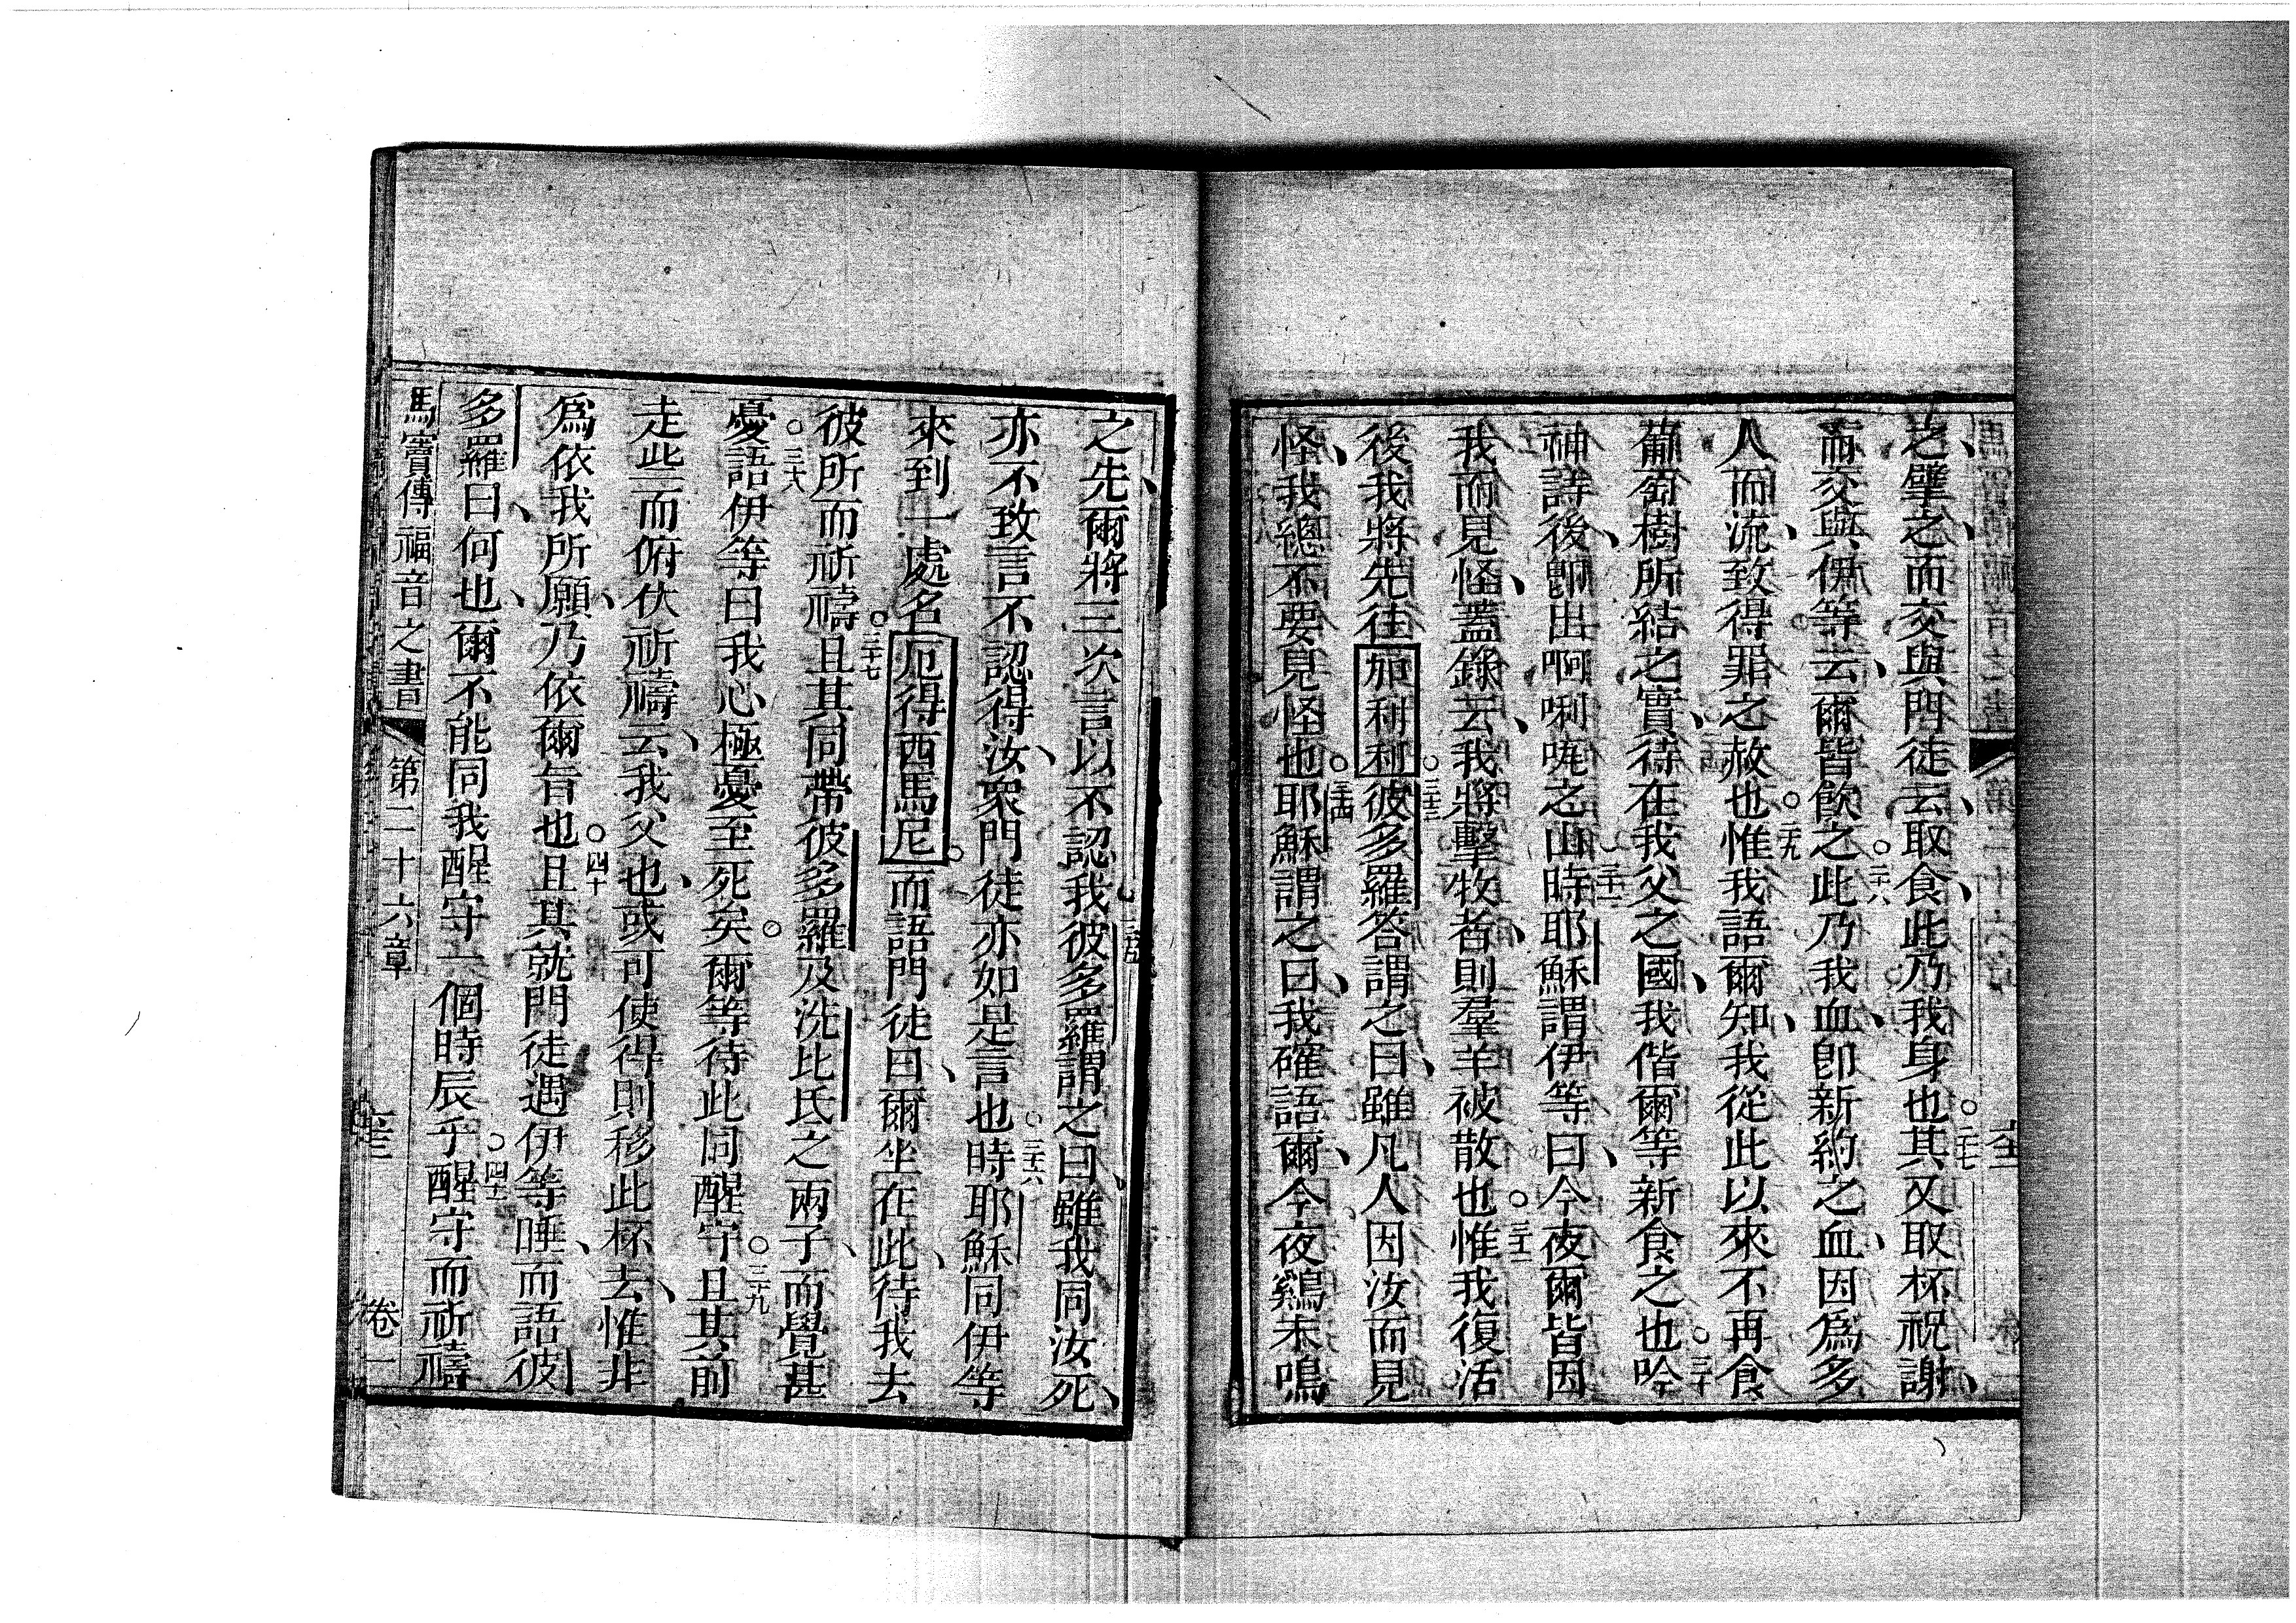 之、擘之、而交與門徒云、取食、此乃我身也。二十七其又取杯祝謝、
而交與伊等云、爾皆飲之。二十八此乃我血、卽新約之血、因爲多
人而流、致得罪之赦也。二十九惟我語爾知、我從此以來不再食
葡萄樹所結之實、待在我父之國、我偕爾等新食之也。三十吟
神詩後、卽出啊唎唣之山。三十一時耶穌謂伊等曰、今夜爾皆因
我而見怪、蓋錄云、我將擊牧者、則羣羊被散也。三十二惟我復活
後我將先往加利利。三十三彼多羅答謂之曰、雖凡人因汝而見
怪、我總不要見怪也。三十四耶穌謂之曰、我確語爾、今夜鷄未鳴
之先、爾將三次言以不認我。三十五彼多羅謂之曰、雖我同汝死、
亦不致言不認得汝、衆門徒亦如是言也。三十六時耶穌同伊等
來到一處名厄得西馬尼。而語門徒曰、爾坐在此、待我去
彼所而祈禱。三十七且其同帶彼多羅及洗比氏之兩子、而覺甚
憂。三十八語伊等曰我心極憂至死矣。爾等待此同醒守。三十九且其前
走些而俯伏祈禱云、我父也、或可使得、則移此杯去、惟非
爲依我所願、乃依爾旨也。四十且其就門徒遇伊等睡、而語彼
多羅曰、何也、爾不能同我醒守一個時辰乎。四十一醒守而祈禱
馬竇傳福音之書 第二十六章 卷一